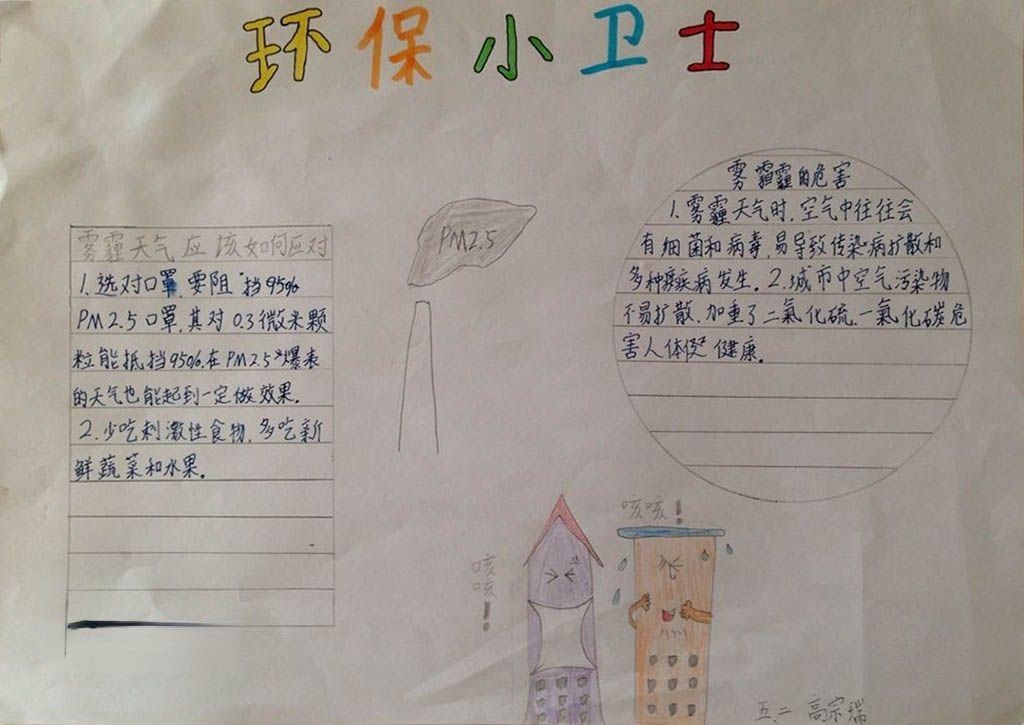 环保小卫士
雾霾天气应该如何应对
1.选对口罩,要阻挡95%
PM2.5口罩,其对0.3微米颗
粒能抵挡95%.在PM2.5"爆表
的天气也能起到一定做效果。
2.少吃刺激性食物,多吃新
鲜蔬菜和水果。
PM2.5
雾霾霾的危害
1.雾霾天气时,空气中往往会
有细菌和病毒,易导致传染病扩散和
多种疾病发生。2.城市中空气污染物
不易扩散,加重了二氧化硫、一氧化碳危
害人体健康。
咳咳!
咳咳!
五、二 高宗瑞